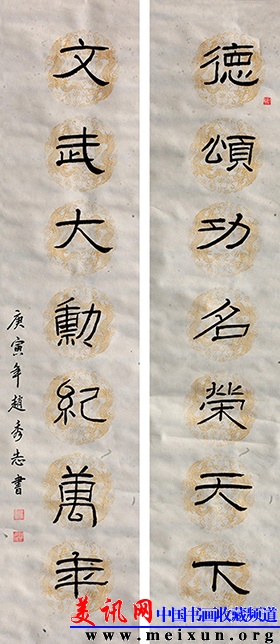 德頌功名榮天下
文武大勳紀萬年
庚寅年趙秀志書
美讯网 中国书画收藏频道
www.meixun.org